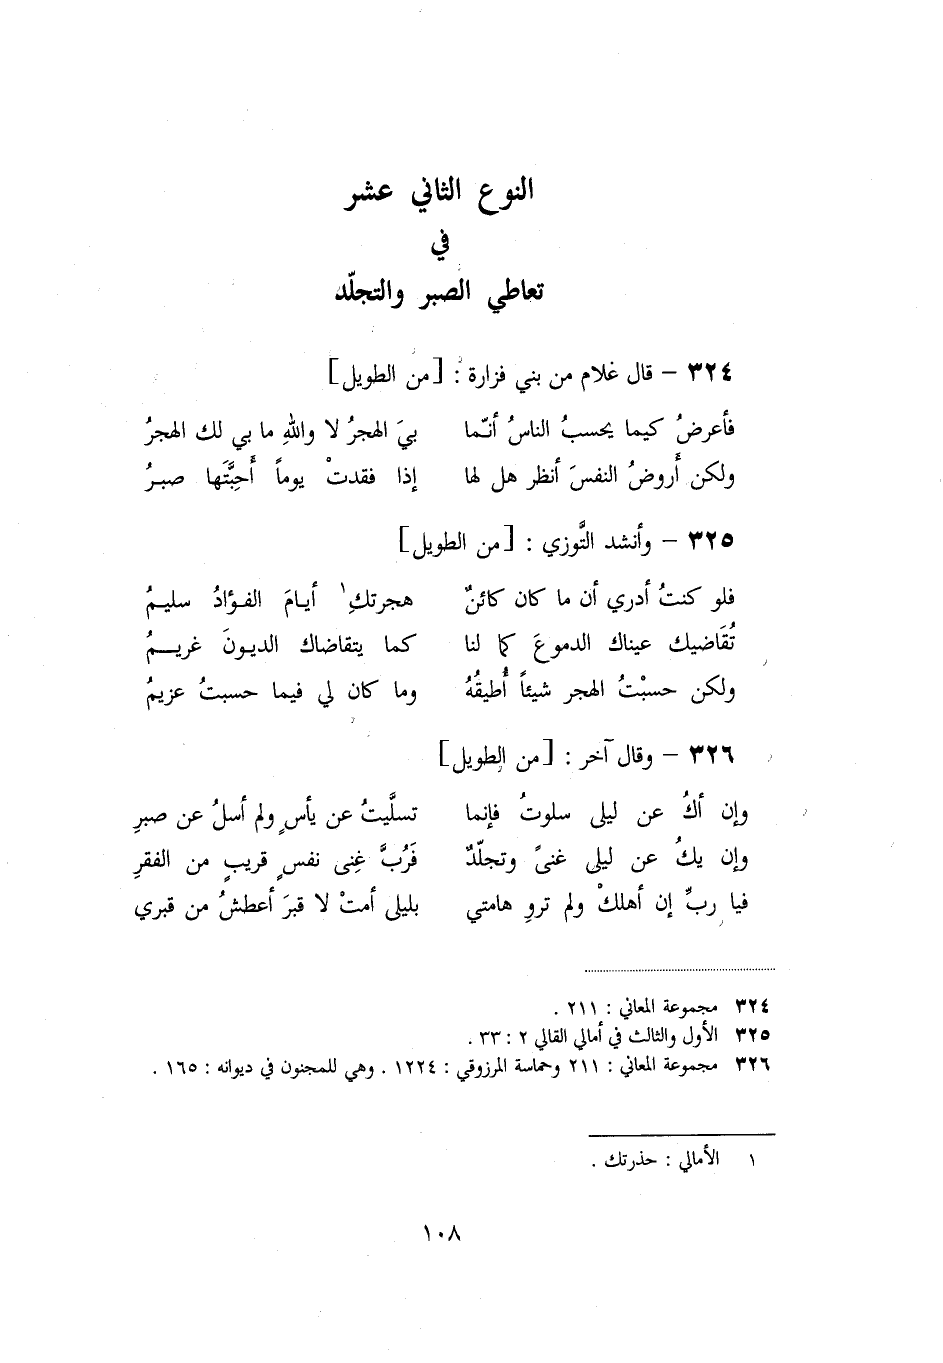 النوع الثاني عشر
في
تعاطي الصبر والتجلّد
٣٢٤ – قال غلام من بني فزارة : [من الطويل]
فأعرضُ كيما يحسبُ الناسُ أنّما بيَ الهجرُ لا واللهِ ما بي لك الهجرُ
ولكن أَروضُ النفسَ أنظر هل لها إذا فقدتْ يوماً أَحِبَّتَها صبرُ
٣٢٥ – وأنشد التَّوزي : [من الطويل]
فلو كنتُ أدري أن ما كان كائنٌ هجرتكِ١ أيامَ الفؤادُ سليمُ
تُقَاضيك عيناك الدموعَ كما لنا كما يتقاضاك الديونَ غريمُ
ولكن حسبْتُ الهجر شيئاً أُطيقُهُ وما كان لي فيما حسبتُ عزيمُ
٣٢٦ – وقال آخر : [من الطويل]
وإن أكُ عن ليلى سلوتُ فإنما تسلَّيتُ عن يأسٍ ولم أسلُ عن صبرِ
وإن يكُ عن ليلى غنىً وتجلّدٌ فَرُبَّ غِنى نفسٍ قريبٍ من الفقرِ
فيا ربِّ إن أهلكْ ولم تروِ هامتي بليلى أمتْ لا قبرَ أعطشُ من قبري
٣٢٤ مجموعة المعاني : ٢١١ .
٣٢٥ الأول والثالث في أمالي القالي ٢ : ٣٣ .
٣٢٦ مجموعة المعاني : ٢١١ وحماسة المرزوقي : ١٢٢٤ . وهي للمجنون في ديوانه : ١٦٥ .
١ الأمالي : حذرتك .
١٠٨